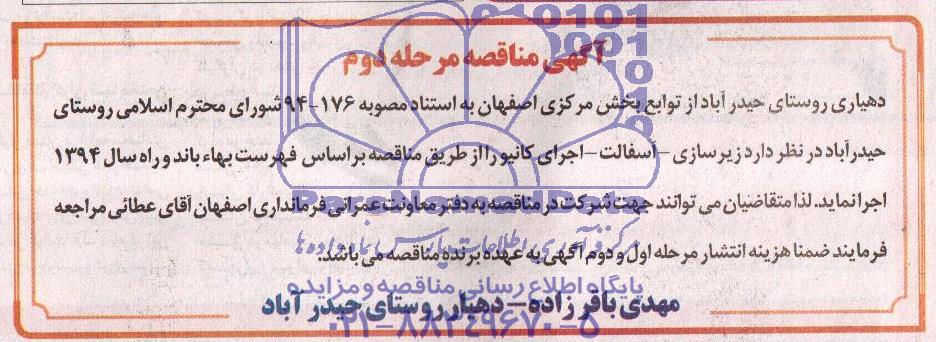 آگهی مناقصه مرحله دوم
دهیاری روستای حیدر آباد از توابع بخش مرکزی اصفهان به استناد مصوبه ۱۷۶-۹۴ شورای محترم اسلامی روستای
حیدرآباد در نظر دارد زیرسازی -آسفالت-اجرای کانیو را از طریق مناقصه براساس فهرست بهاء باند و راه سال ۱۳۹۴
اجرا نماید. لذا متقاضیان می توانند جهت شرکت در مناقصه به دفتر معاونت عمرانی فرمانداری اصفهان آقای عطائی مراجعه
فرمایند ضمنا هزینه انتشار مرحله اول و دوم آگهی به عهده برنده مناقصه می باشد.
پایگاه اطلاع رسانی مناقصه و مزایده
مهدی باقرزاده - دهیار روستای حیدر آباد
۰۲۱-۸۸۳۴۹۶۷۰-۵